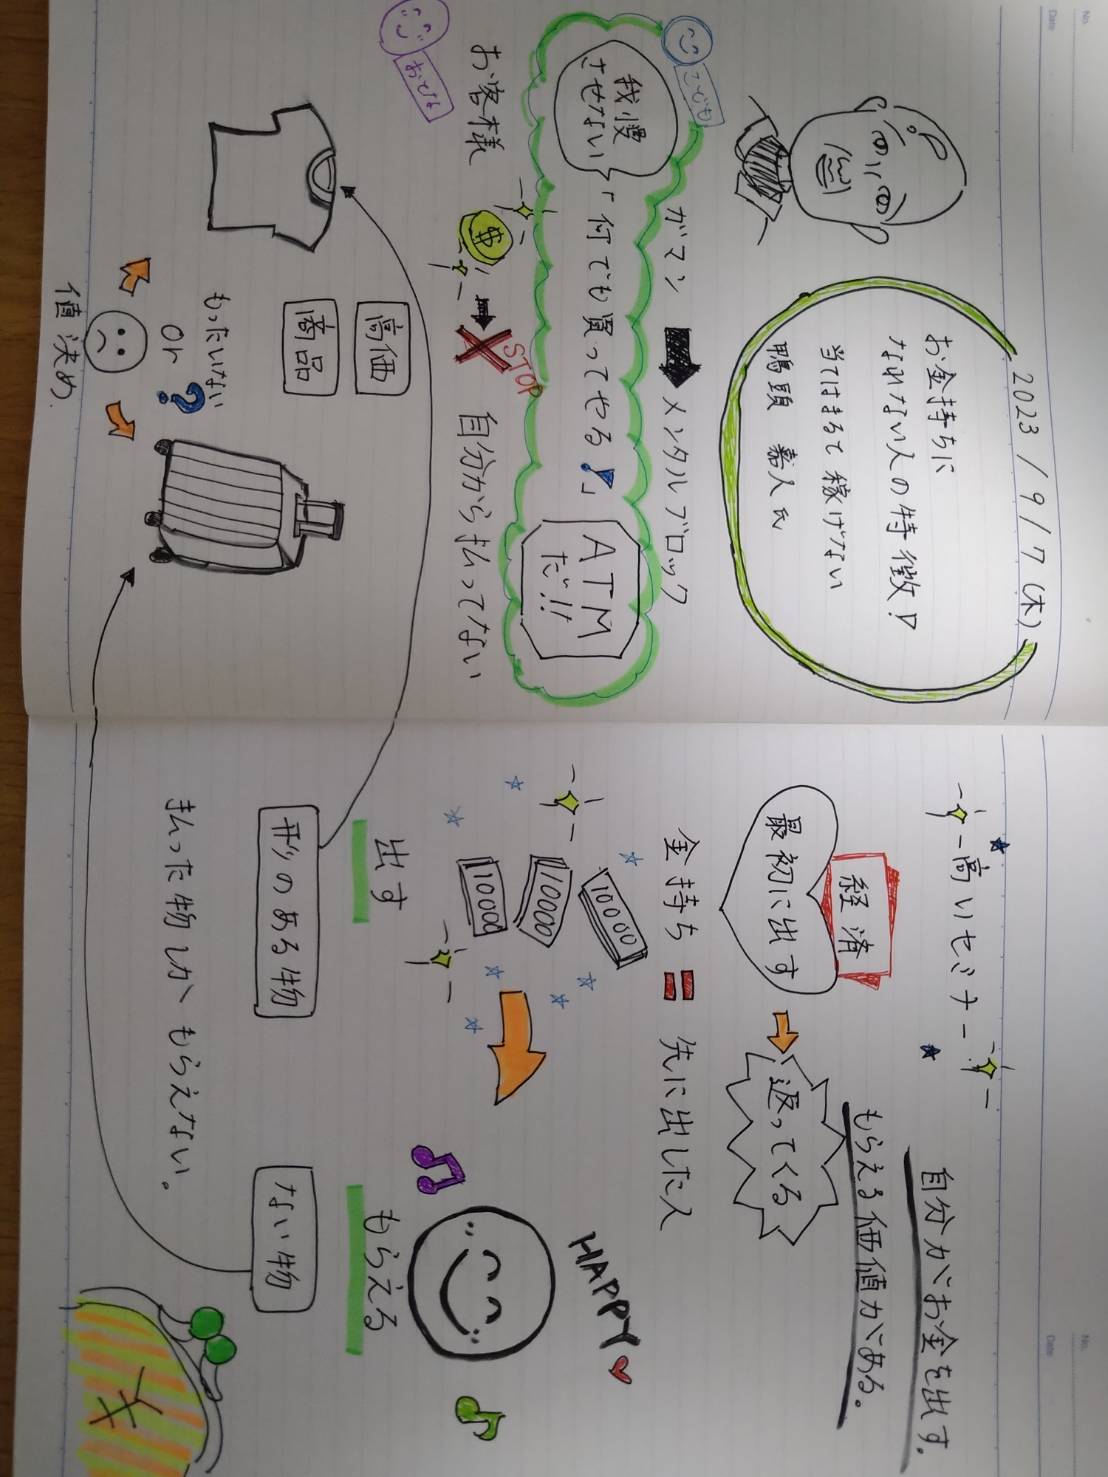 No.
Date
2023/9/7(木)
お金持ちに
なれない人の特徴!
当てはまると稼げない
鴨頭 嘉人氏
ガマン → メンタルブロック
こども
我慢
させない
「何でも買ってやる!」
ATM
だ!!
おとな
お客様
$
STOP
自分から払ってない
高価
商品
もったいない
or
?
値決め.
No.
Date
-高いセミナー-
自分がお金を出す。
もらえる価値がある。
経済
最初に出す
返ってくる
金持ち = 先に出した人
10000
10000
10000
HAPPY
出す
もらえる
形のある物
ない物
払った物しかもらえない。